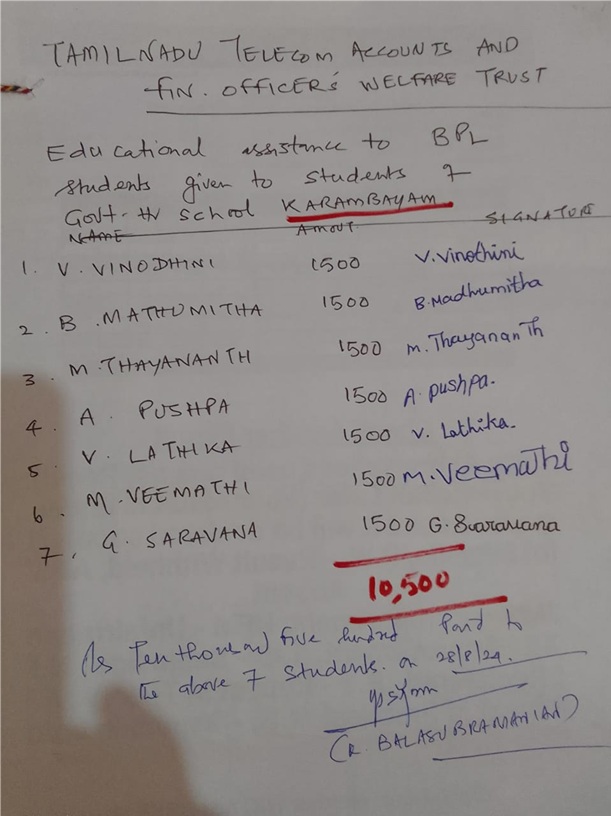 TAMILNADU TELECOM ACCOUNTS AND
FIN. OFFICER'S WELFARE TRUST
Educational assistance to BPL
students given to students of
Govt-Hr School KARAMBAYAM
NAME AMOUT SIGNATURE
1. V. VINODHINI 1500 V.Vinothini
2. B. MATHUMITHA 1500 B.Madhumitha
3. M.THAYANANTH 1500 M.ThayananTh
4. A. PUSHPA 1500 A.pushpa.
5. V. LATHIKA 1500 V. Lathika.
6. M.VEEMATHI 1500 M.VeemaThi
7. G. SARAVANA 1500 G.Saravana
10,500
(Rs Ten thousand five hundred Paid to
the above 7 students. on 28/8/24.
(R. BALASUBRAMANIAN)